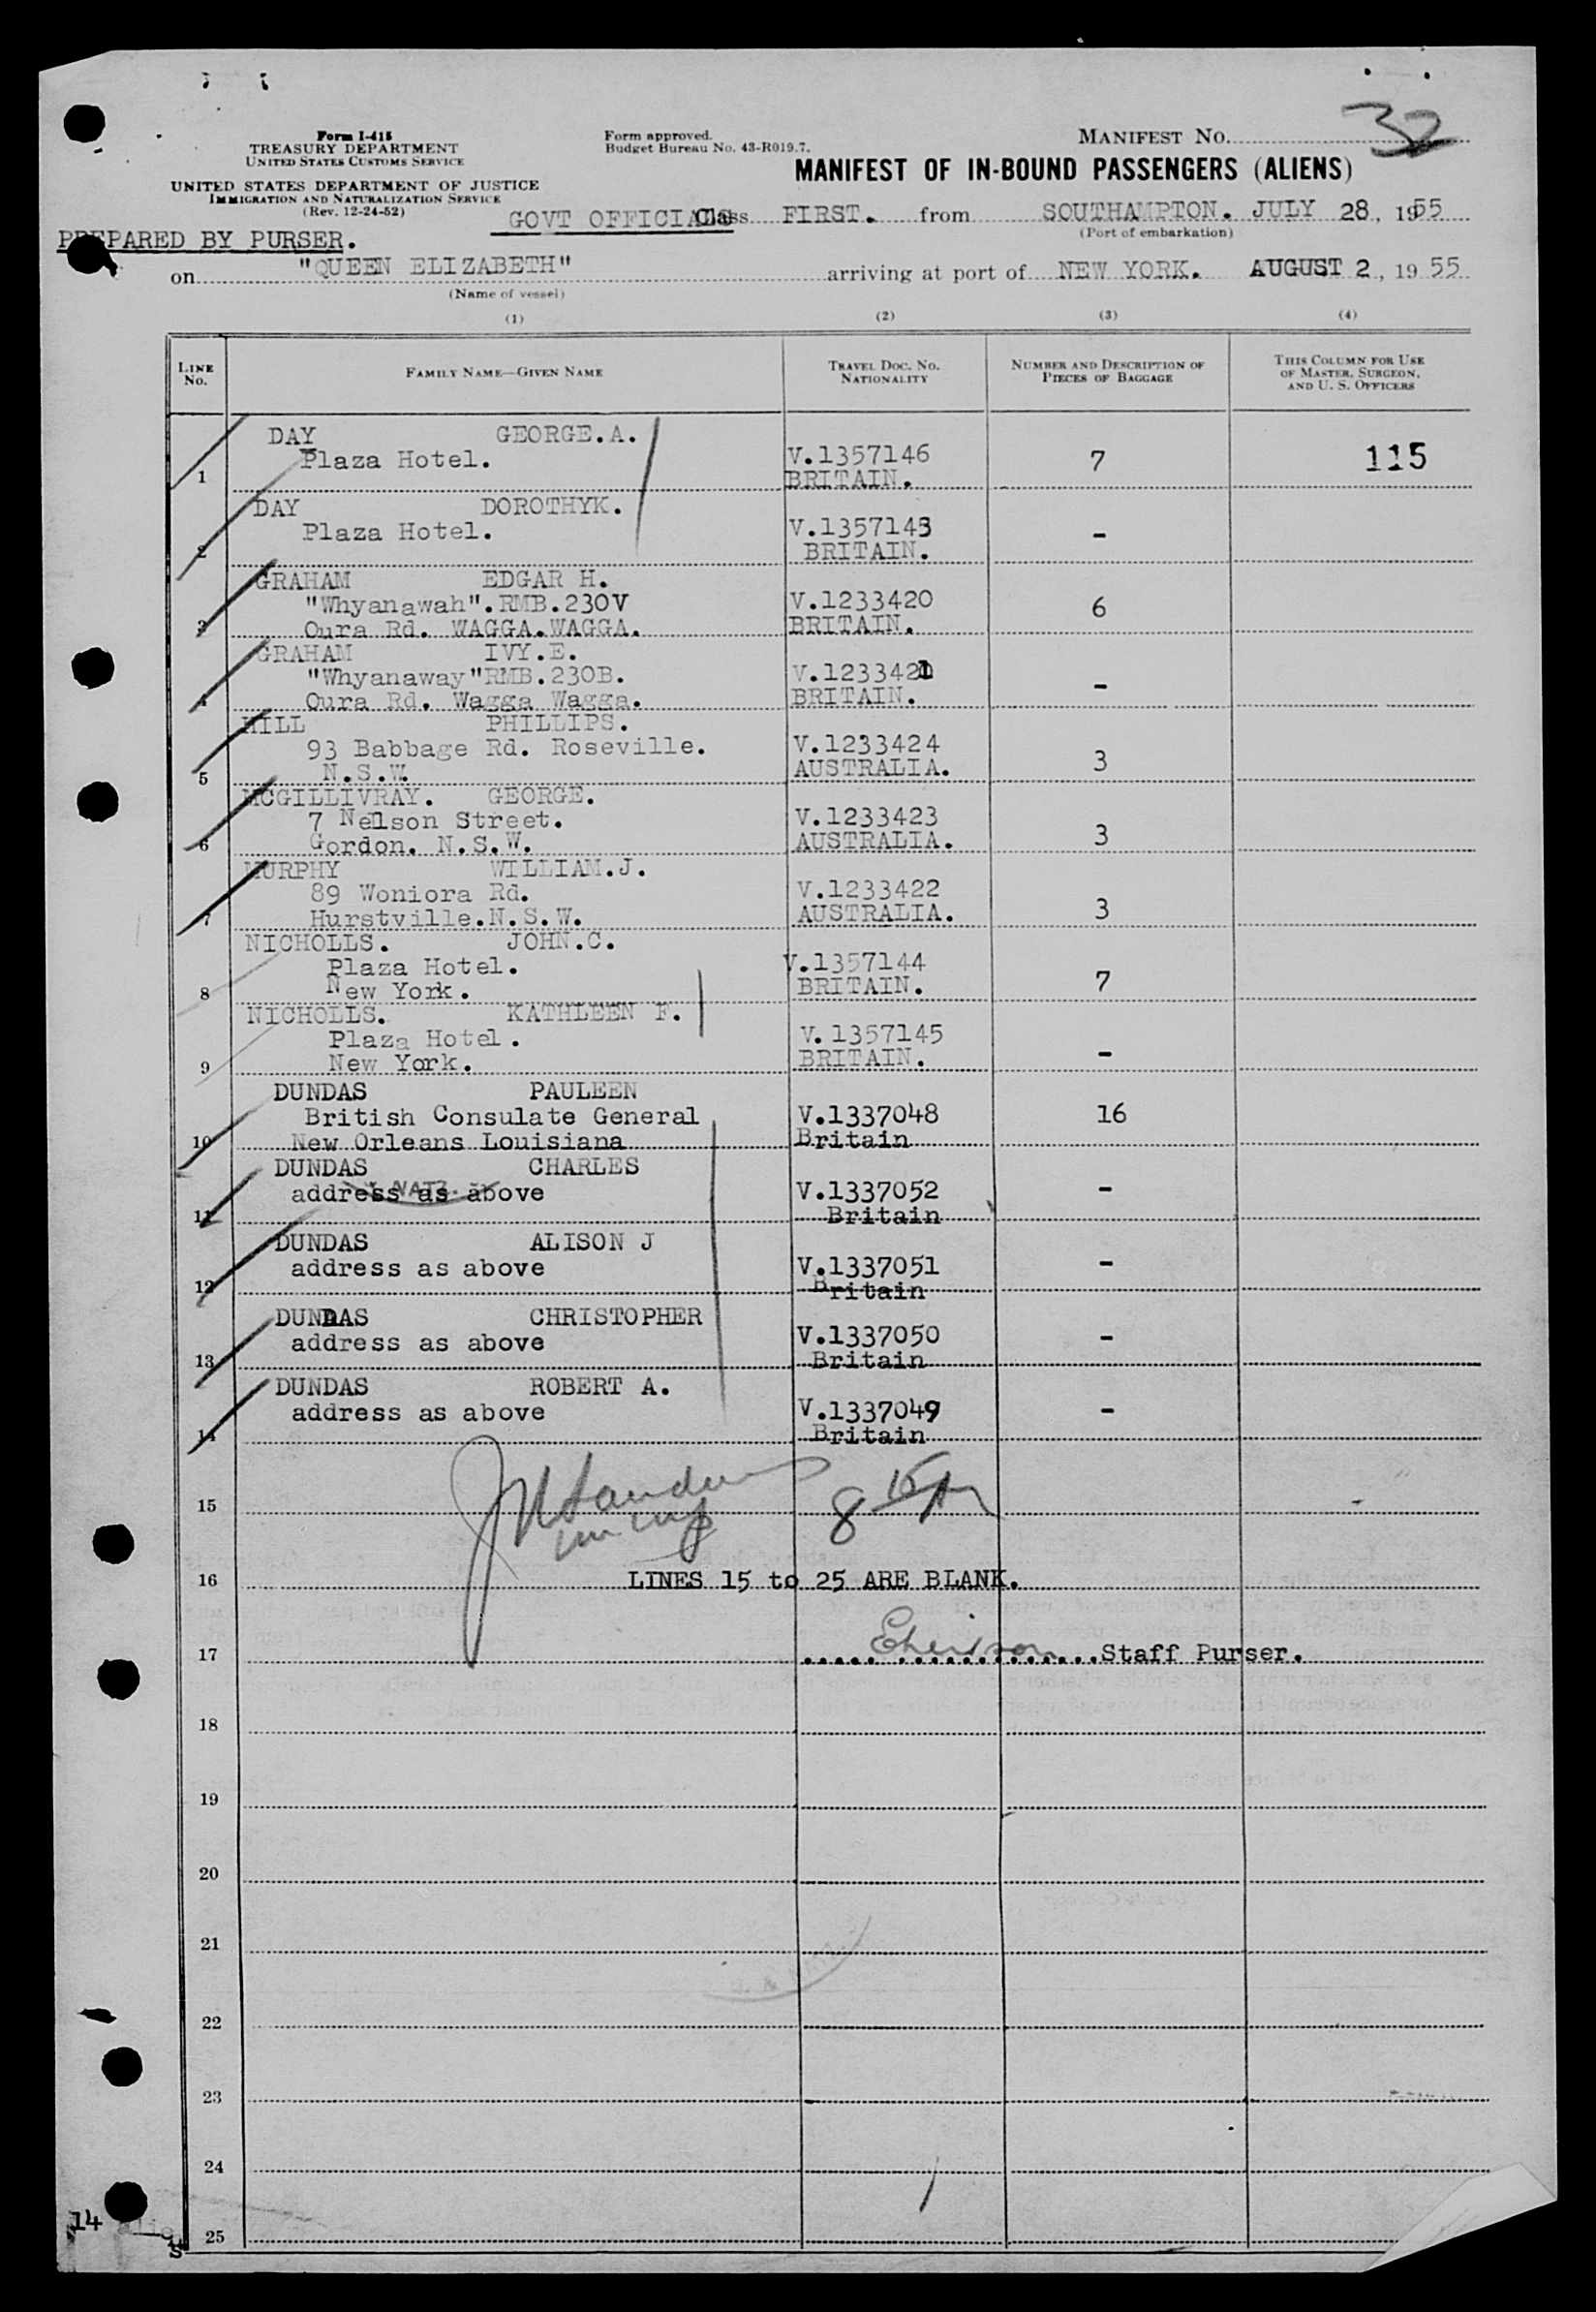 Form I-415
TREASURY DEPARTMENT
UNITED STATES CUSTOMS SERVICE
UNITED STATES DEPARTMENT OF JUSTICE
IMMIGRATION AND NATURALIZATION SERVICE
(Rev. 12-24-52)
Form approved.
Budget Bureau No. 43-R019.7.
MANIFEST No. 32
MANIFEST OF IN-BOUND PASSENGERS (ALIENS)
GOVT OFFICIALS Class FIRST. from SOUTHAMPTON. JULY 28, 1955
(Port of embarkation)
PREPARED BY PURSER.
on "QUEEN ELIZABETH" arriving at port of NEW YORK. AUGUST 2, 1955
(Name of vessel)
(1) (2) (3) (4)
LINE No. FAMILY NAME—GIVEN NAME TRAVEL DOC. NO. NATIONALITY NUMBER AND DESCRIPTION OF PIECES OF BAGGAGE THIS COLUMN FOR USE OF MASTER, SURGEON, AND U. S. OFFICERS
DAY GEORGE.A.
Plaza Hotel. V.1357146 7 115
1 BRITAIN.
DAY DOROTHYK.
Plaza Hotel. V.1357143 -
2 BRITAIN.
GRAHAM EDGAR H.
"Whyanawah".RMB.230V V.1233420 6
3 Oura Rd. WAGGA.WAGGA. BRITAIN.
GRAHAM IVY.E.
"Whyanaway"RMB.230B. V.1233421 -
4 Oura Rd. Wagga Wagga. BRITAIN.
HILL PHILLIPS.
93 Babbage Rd. Roseville. V.1233424 3
5 N.S.W. AUSTRALIA.
MCGILLIVRAY. GEORGE.
7 Nelson Street. V.1233423 3
6 Gordon. N.S.W. AUSTRALIA.
MURPHY WILLIAM.J.
89 Woniora Rd. V.1233422 3
7 Hurstville.N.S.W. AUSTRALIA.
NICHOLLS. JOHN.C.
Plaza Hotel. V.1357144 7
8 New York. BRITAIN.
NICHOLLS. KATHLEEN F.
Plaza Hotel. V.1357145 -
9 New York. BRITAIN.
DUNDAS PAULEEN
British Consulate General V.1337048 16
10 New Orleans Louisiana Britain
DUNDAS CHARLES
address as above V.1337052 -
11 Britain
DUNDAS ALISON J
address as above V.1337051 -
12 Britain
DUNDAS CHRISTOPHER
address as above V.1337050 -
13 Britain
DUNDAS ROBERT A.
address as above V.1337049 -
14 Britain
15
16 LINES 15 to 25 ARE BLANK.
17 Staff Purser.
18
19
20
21
22
23
24
25
14
S